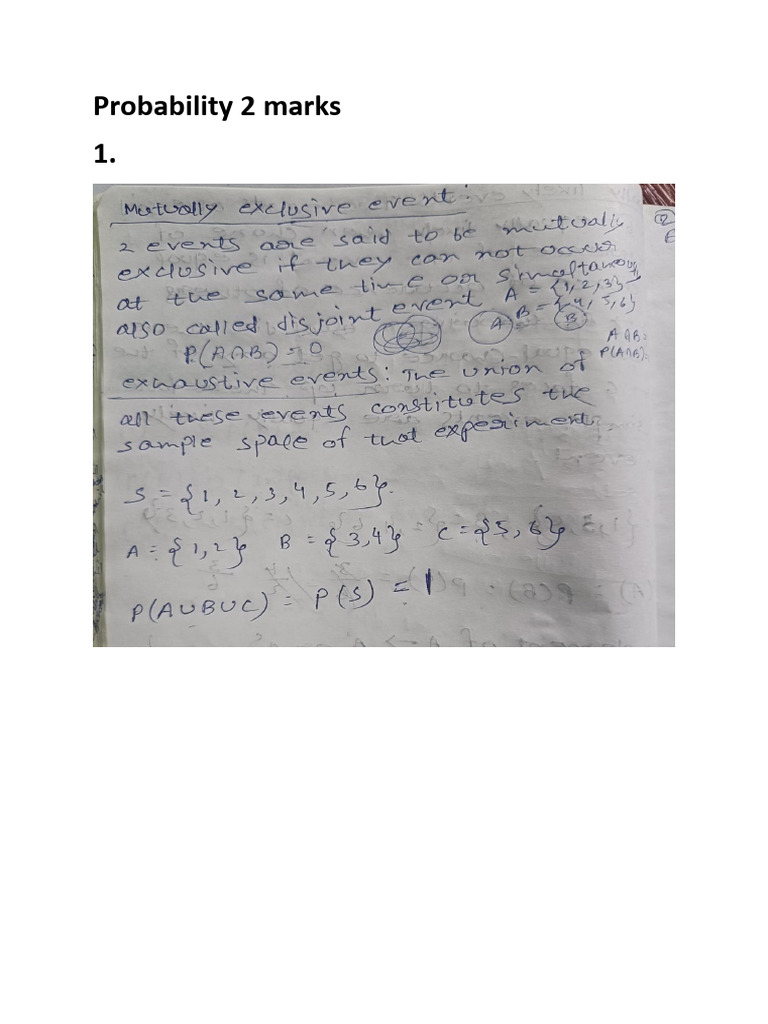 Probability 2 marks
1.
Mutually exclusive event:
2 events are said to be mutually
exclusive if they can not occur
at the same time or simultaneously
also called disjoint event A = {1,2,3}
B = {4,5,6}
A B
P(A∩B) = 0
A∩B=
P(A∩B)=
exhaustive events: The union of
all these events constitutes the
sample space of that experiment.
S = {1, 2, 3, 4, 5, 6}.
A = {1,2} B = {3,4} C = {5, 6}
P(A∪B∪C) = P(S) = 1